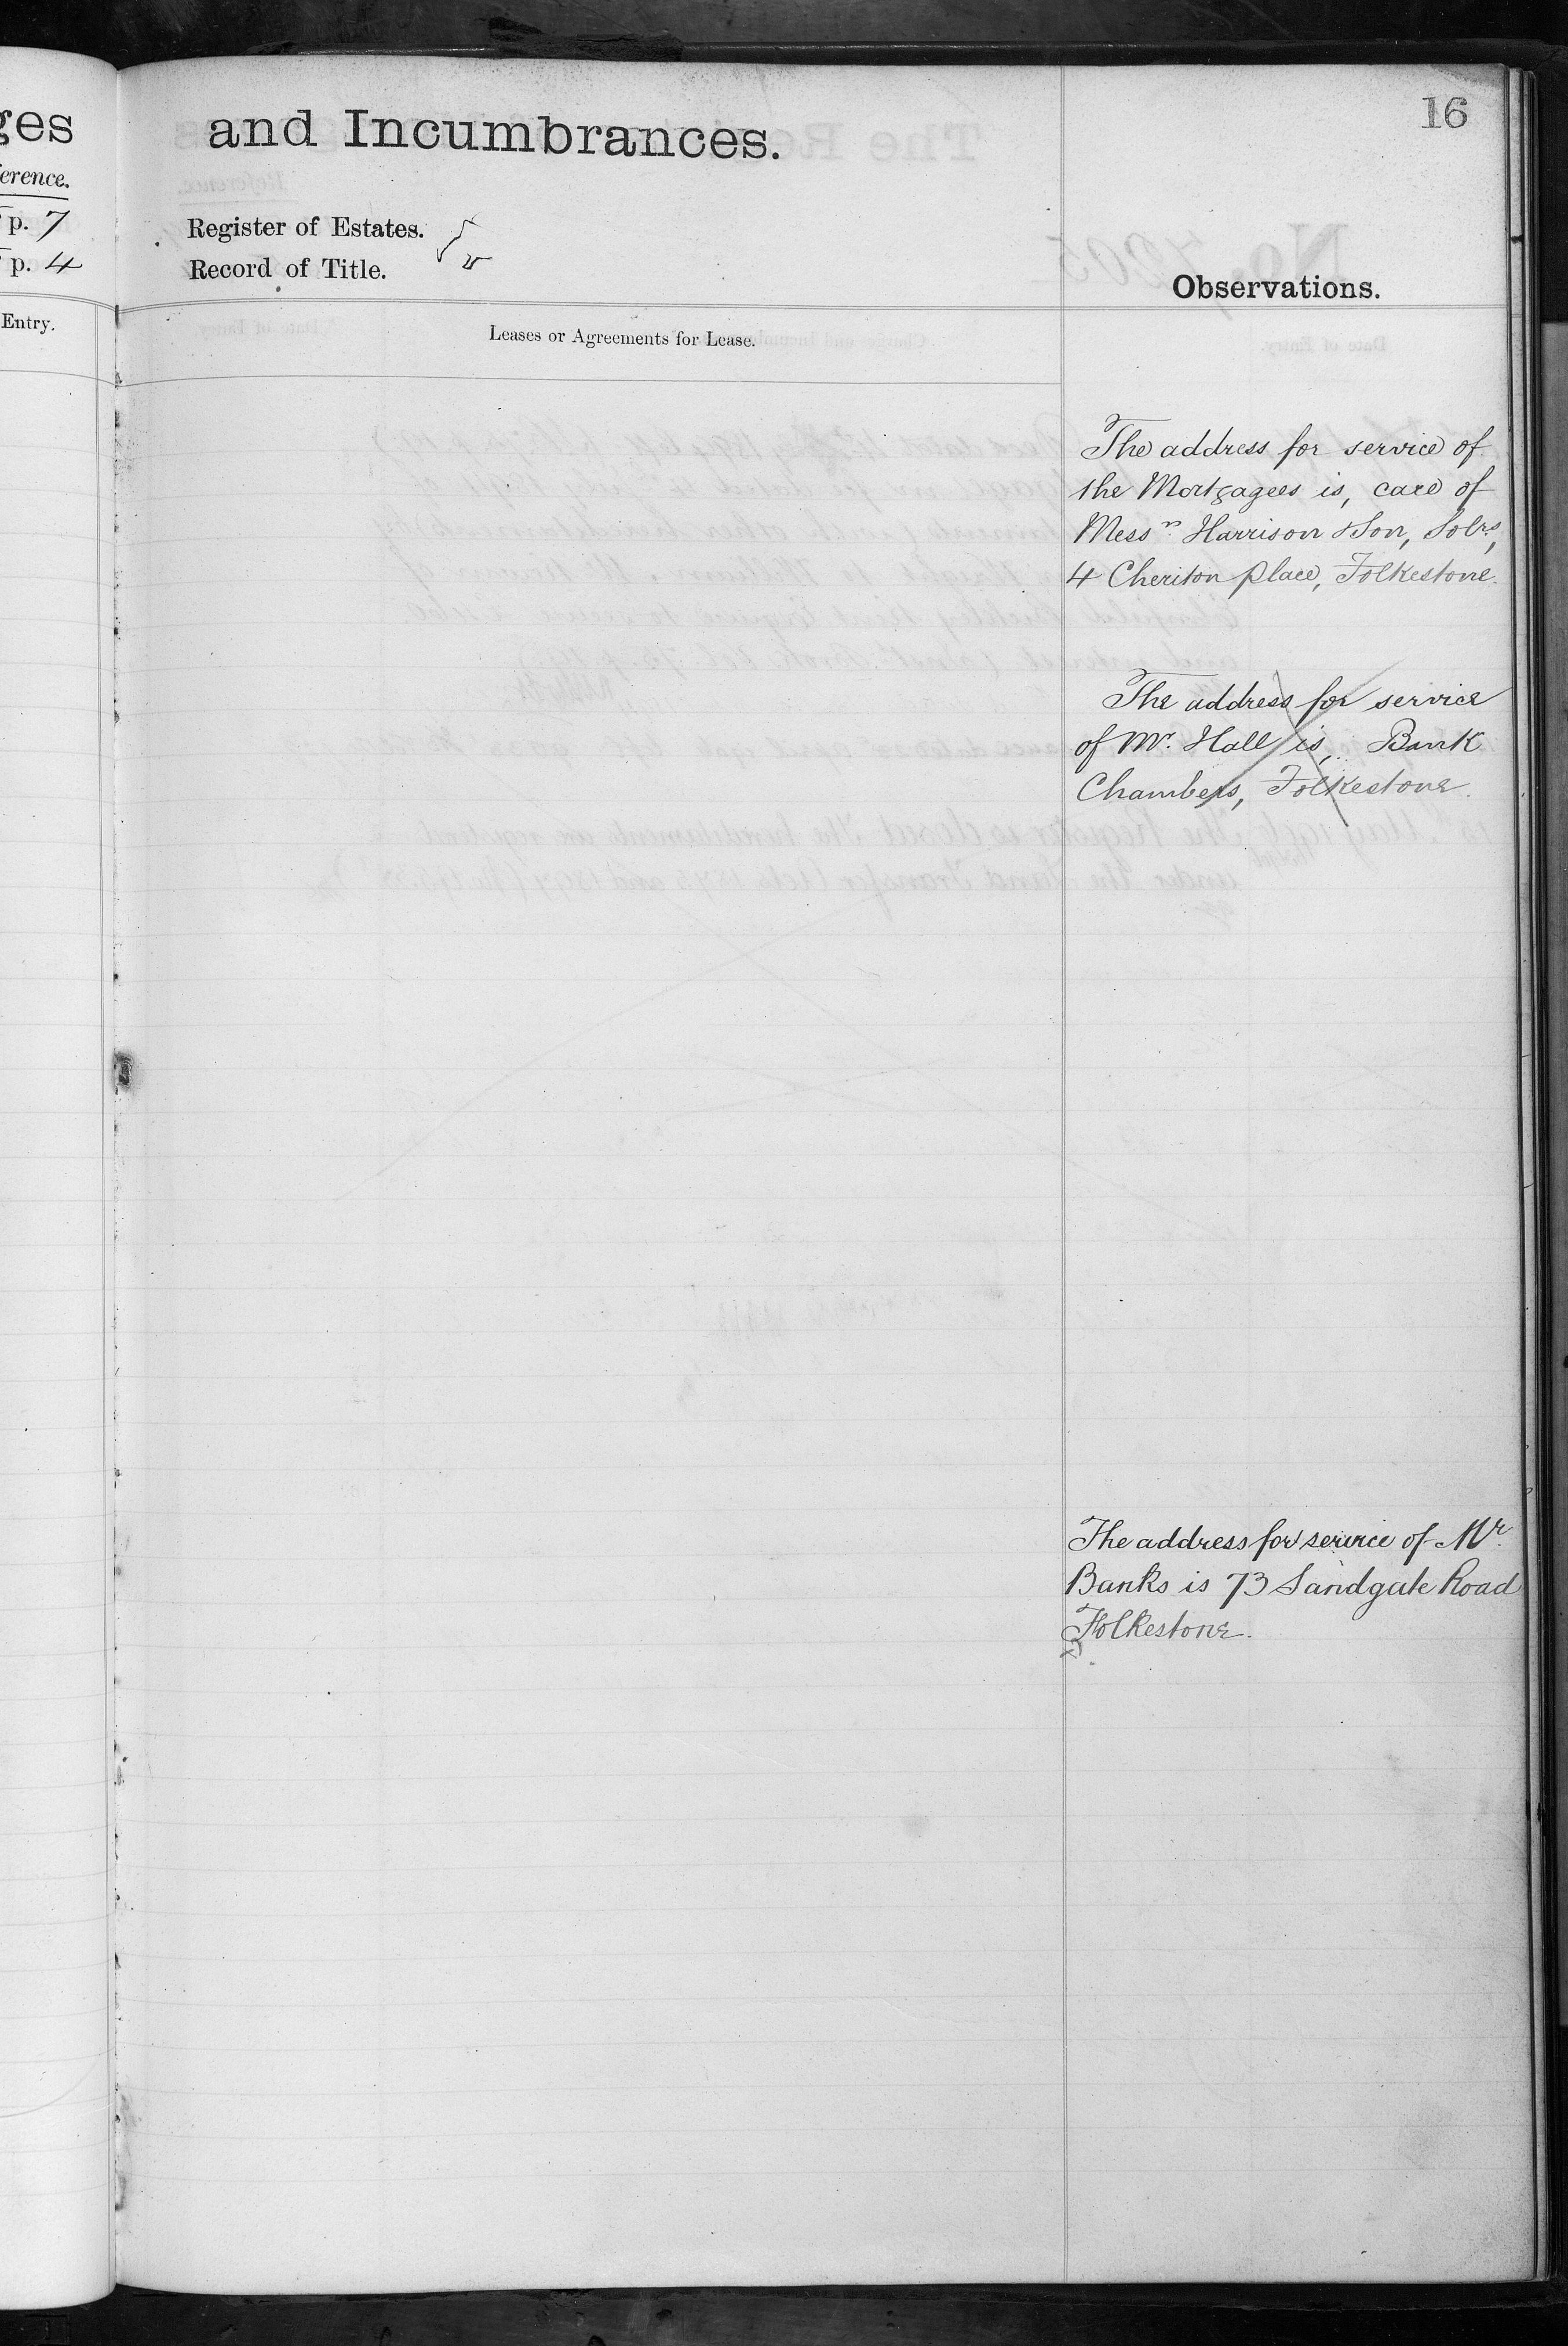 16
ges
and Incumbrances.
erence.
p. 7
p. 4
Entry.
Register of Estates.
Record of Title.
Leases or Agreements for Lease.
Observations.
The address for service of
the Mortgagees is, care of
Messrs. Harrison & Son, Solrs,
4 Cheriton place, Folkestone.
The address for service
of Mr. Hall is, Bank
Chambers, Folkestone.
The address for service of Mr.
Banks is 73 Sandgate Road
Folkestone.